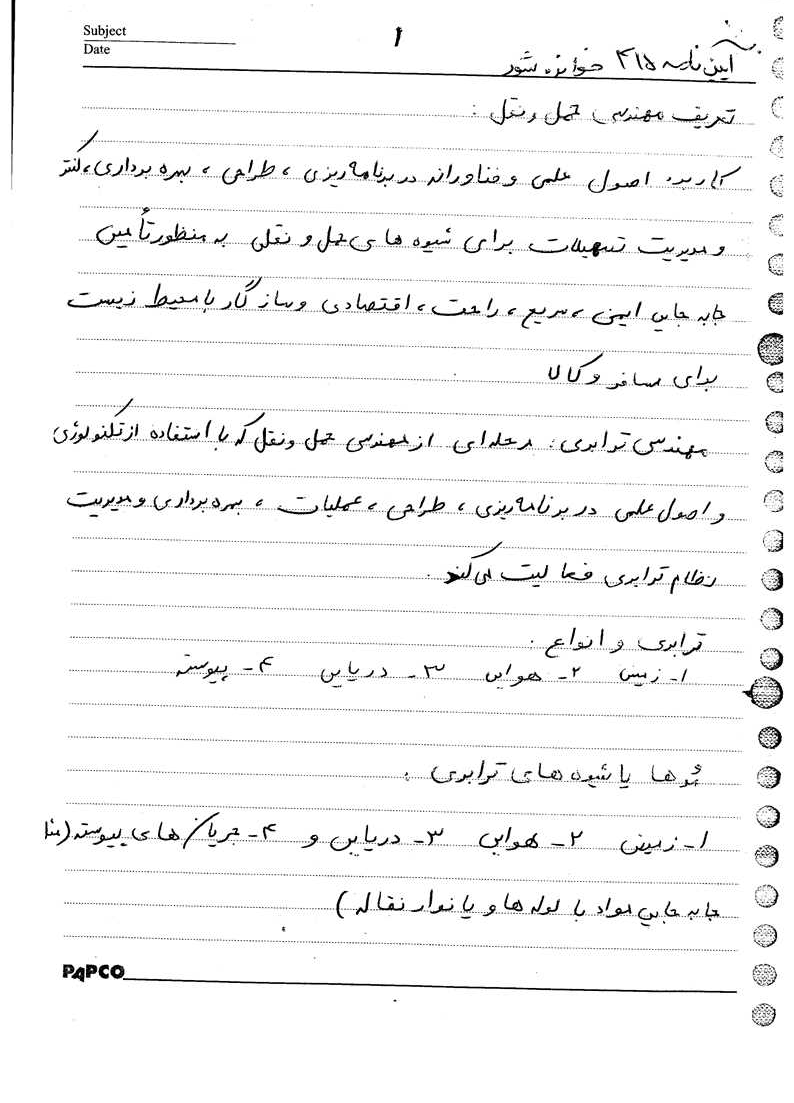 Subject
Date
1
آیین نامه ۴۱۵ خوانده شود
تعریف مهندسی حمل و نقل :
کاربرد اصول علمی و فناورانه در برنامه ریزی ، طراحی ، بهره برداری ، کنتر
و مدیریت تسهیلات برای شیوه های حمل و نقلی به منظور تأمین
جابه جایی ایمنی ، سریع ، راحت ، اقتصادی و سازگار با محیط زیست
برای مسافر و کالا
مهندسی ترابری : مرحله ای از مهندسی حمل و نقل که با استفاده از تکنولوژی
و اصول علمی در برنامه ریزی ، طراحی ، عملیات ، بهره برداری و مدیریت
نظام ترابری فعالیت می کند .
ترابری و انواع :
۱- زمینی ۲- هوایی ۳- دریایی ۴- پیوسته
مُدها یا شیوه های ترابری :
۱- زمینی ۲- هوایی ۳- دریایی و ۴- جریان های پیوسته (مثلا
جابه جایی مواد با لوله ها و یا نوار نقاله )
PAPCO